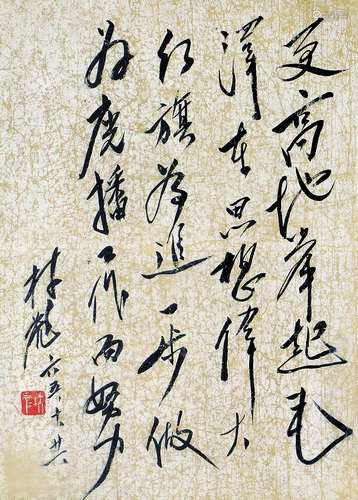 更高地举起毛
澤东思想偉大
红旗為進一步做
好廣播工作而努力
林彪 六五、十、廿六